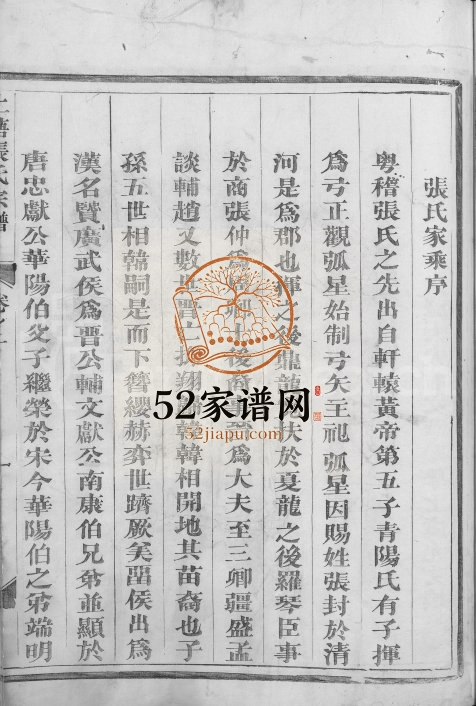 張氏家乘序
粵稽張氏之先出自軒轅黃帝第五子青陽氏有子揮
爲弓正觀弧星始制弓矢主祀弧星因賜姓張封於清
河是爲郡也揮之後鼎龍夫於夏龍之後羅琴臣事
於商張仲爲卿士後裔爲大夫至三卿疆盛孟
談輔趙又數世晋翔韓韓相開地其苗裔也子
孫五世相韓嗣是而下簪纓赫奕世躋厥美畱侯出爲
漢名賢廣武侯爲晋公輔文獻公南康伯兄弟並顯於
唐忠獻公華陽伯父子繼榮於宋今華陽伯之弟端明
張氏宗譜
52家谱网
52jiapu.com